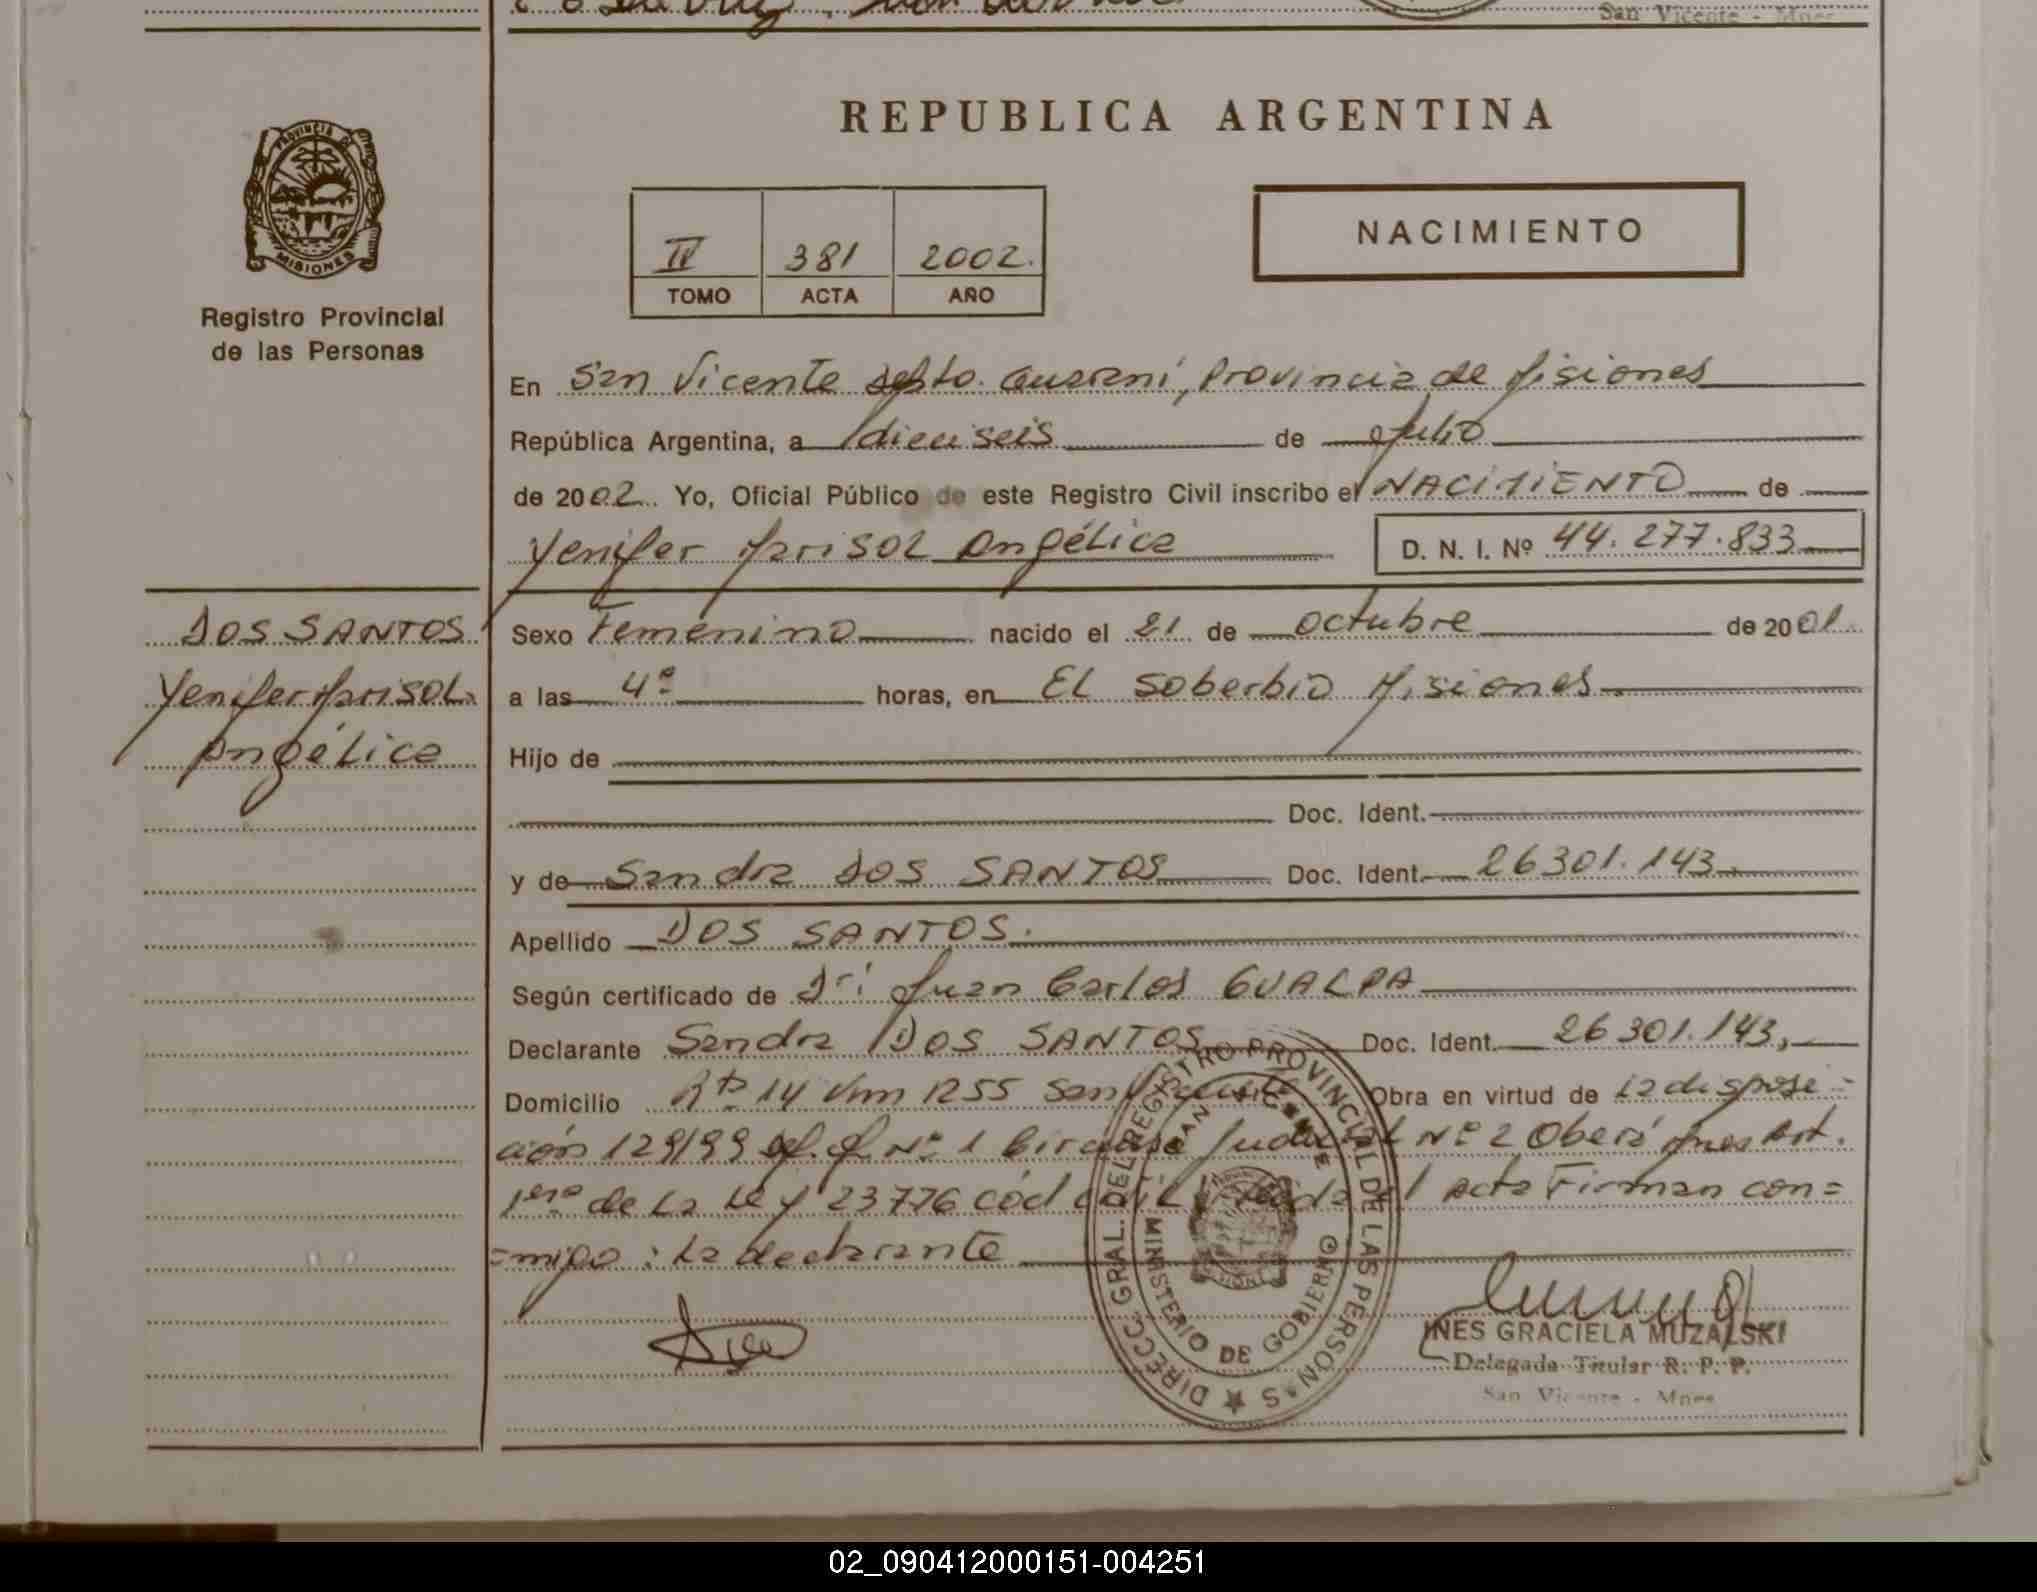 San Vicente - Mnes
REPUBLICA ARGENTINA
PROVINCIA DE
MISIONES
Registro Provincial
de las Personas
NACIMIENTO
IV 381 2002.
TOMO ACTA AÑO
En San Vicente Dpto. Guaraní, Provincia de Misiones
República Argentina, a dieciseis de Julio
de 2002 Yo, Oficial Público de este Registro Civil inscribo el NACIMIENTO de
Yenifer Marisol Angélica D. N. I. Nº 44.277.833
DOS SANTOS
Yenifer Marisol
Angélica
Sexo Femenino nacido el 21 de octubre de 2001.
a las 4º horas, en EL Soberbio Misiones
Hijo de
Doc. Ident.
y de Sandra DOS SANTOS Doc. Ident. 26301.143
Apellido DOS SANTOS.
Según certificado de Dr: Juan Carlos GUALPA
Declarante Sandra DOS SANTOS Doc. Ident. 26301.143,
Domicilio Rta 14 Km 1255 San Vicente Obra en virtud de La disposi-
ción 129/99 Nº 1 Judicial Nº 2 Oberá Mnes Art.
1ero de La Ley 23776 cód civil acta Firman con=
=migo: La declarante
DIRECC. GRAL. DEL REGISTRO PROVINCIAL DE LAS PERSONAS
SAN VICENTE
MINISTERIO DE GOBIERNO
INES GRACIELA MUZALSKI
Delegada Titular R. P. P.
San Vicente - Mnes
02_090412000151-004251